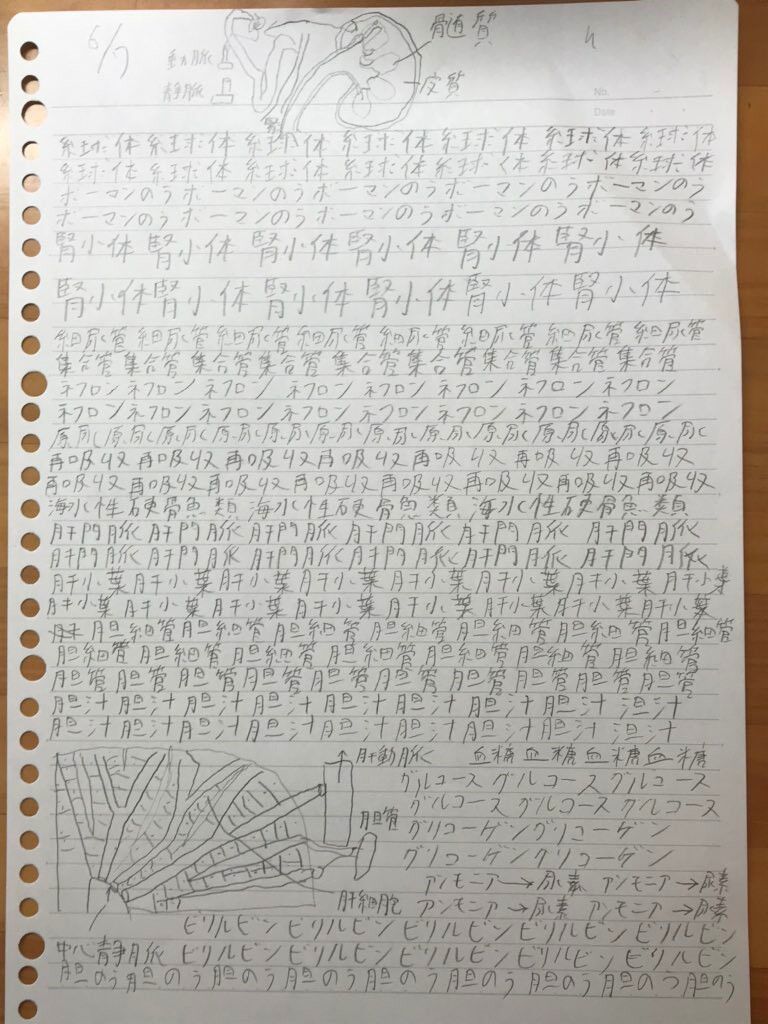 6/7
動脈
静脈
髄質
皮質
No.
Date
糸球体 糸球体 糸球体 糸球体 糸球体 糸球体 糸球体
糸球体 糸球体 糸球体 糸球体 糸球体 糸球体 糸球体
ボーマンのう ボーマンのう ボーマンのう ボーマンのう ボーマンのう
ボーマンのう ボーマンのう ボーマンのう ボーマンのう ボーマンのう
腎小体 腎小体 腎小体 腎小体 腎小体 腎小体
腎小体 腎小体 腎小体 腎小体 腎小体 腎小体
細尿管 細尿管 細尿管 細尿管 細尿管 細尿管 細尿管 細尿管
集合管 集合管 集合管 集合管 集合管 集合管 集合管 集合管 集合管
ネフロン ネフロン ネフロン ネフロン ネフロン ネフロン ネフロン ネフロン
ネフロン ネフロン ネフロン ネフロン ネフロン ネフロン ネフロン ネフロン
原尿 原尿 原尿 原尿 原尿 原尿 原尿 原尿 原尿 原尿 原尿 原尿
再吸収 再吸収 再吸収 再吸収 再吸収 再吸収 再吸収
再吸収 再吸収 再吸収 再吸収 再吸収 再吸収 再吸収 再吸収
海水性硬骨魚類 海水性硬骨魚類 海水性硬骨魚類
肝門脈 肝門脈 肝門脈 肝門脈 肝門脈 肝門脈
肝門脈 肝門脈 肝門脈 肝門脈 肝門脈 肝門脈
肝小葉 肝小葉 肝小葉 肝小葉 肝小葉 肝小葉 肝小葉 肝小葉
肝小葉 肝小葉 肝小葉 肝小葉 肝小葉 肝小葉 肝小葉 肝小葉
胆細管 胆細管 胆細管 胆細管 胆細管 胆細管 胆細管
胆細管 胆細管 胆細管 胆細管 胆細管 胆細管 胆細管
胆管 胆管 胆管 胆管 胆管 胆管 胆管 胆管
胆汁 胆汁 胆汁 胆汁 胆汁 胆汁 胆汁 胆汁 胆汁
胆汁 胆汁 胆汁 胆汁 胆汁 胆汁 胆汁 胆汁 胆汁
肝動脈
血糖 血糖 血糖 血糖
グルコース グルコース グルコース
グルコース グルコース グルコース
胆管
グリコーゲン グリコーゲン
グリコーゲン グリコーゲン
アンモニア→尿素 アンモニア→尿素
肝細胞
アンモニア→尿素 アンモニア→尿素
ビリルビン ビリルビン ビリルビン ビリルビン ビリルビン
中心静脈
ビリルビン ビリルビン ビリルビン ビリルビン ビリルビン
胆のう 胆のう 胆のう 胆のう 胆のう 胆のう 胆のう 胆のう 胆のう